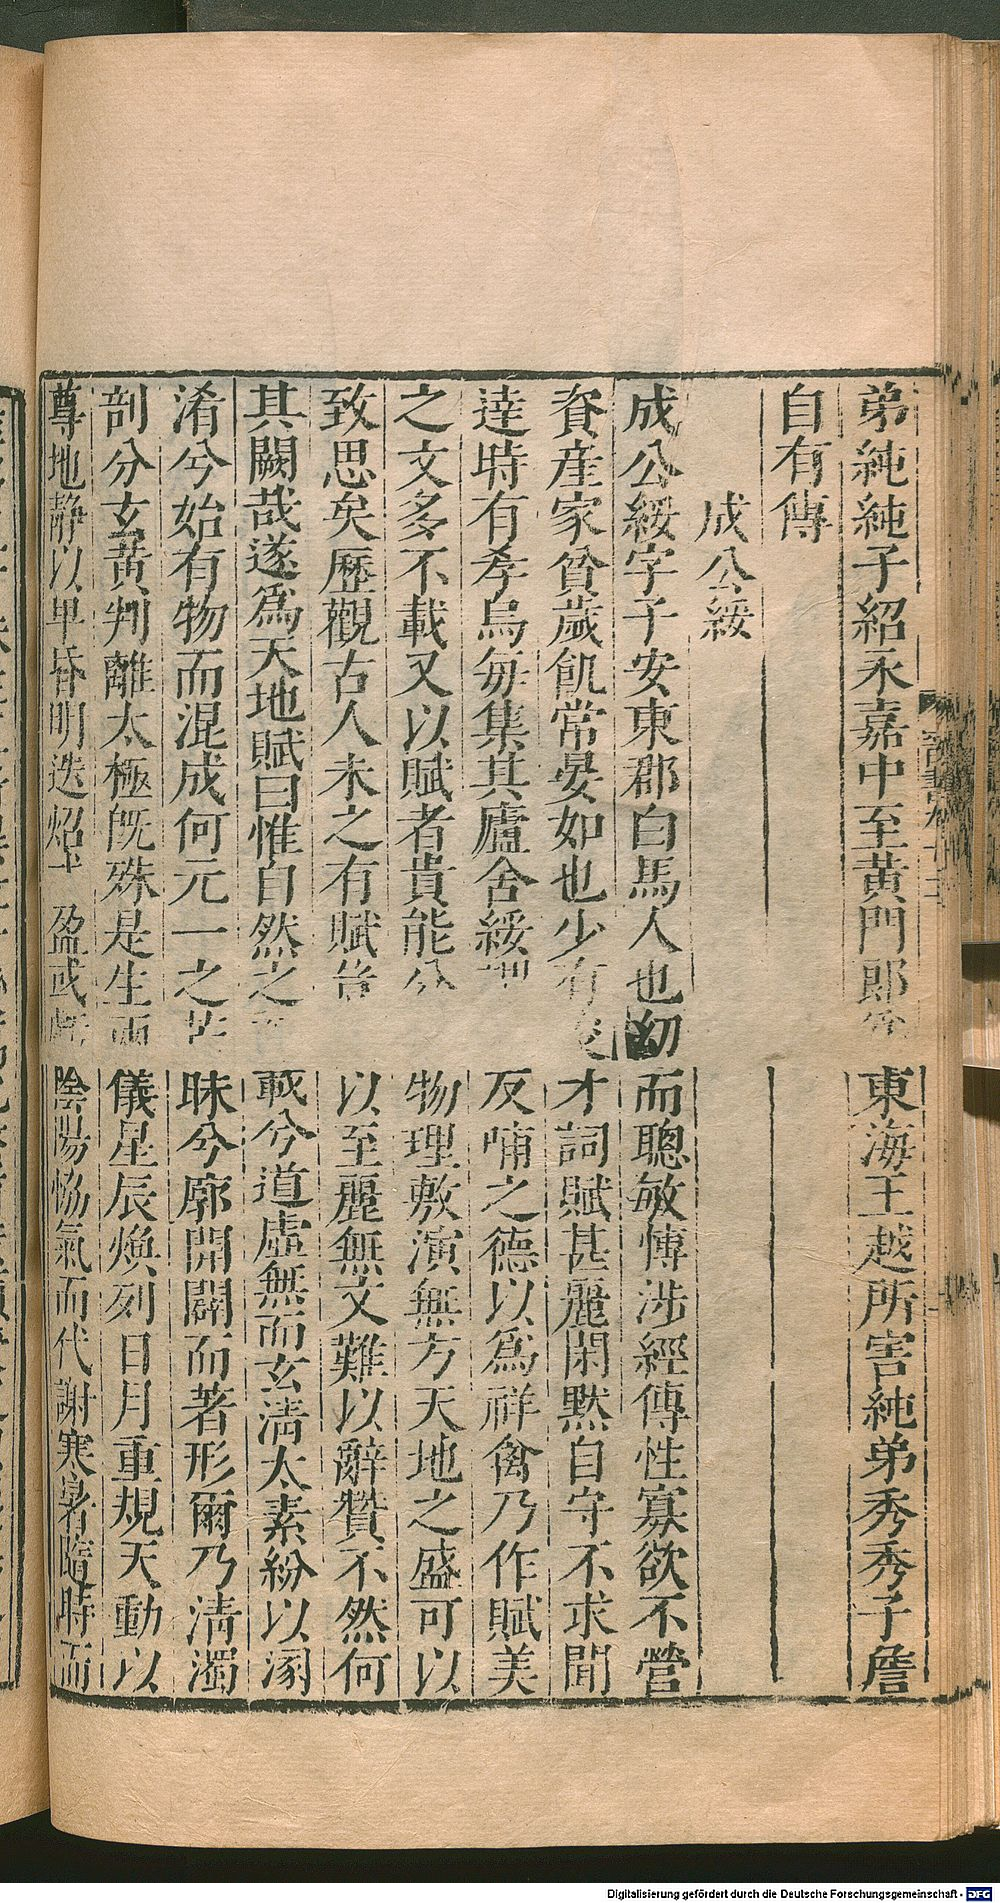 弟純純子紹永嘉中至黃門郎爲東海王越所害純弟秀秀子詹
自有傳
成公綏
成公綏字子安東郡白馬人也幼而聰敏博涉經傳性寡欲不營
資產家貧歲飢常晏如也少有俊才詞賦甚麗閑黙自守不求聞
達時有孝烏每集其廬舍綏謂反哺之德以爲祥禽乃作賦美
之文多不載又以賦者貴能分物理敷演無方天地之盛可以
致思矣歷觀古人未之有賦豈以至麗無文難以辭贊不然何
其闕哉遂爲天地賦曰惟自然之載兮道虛無而玄淸太素紛以溷
淆兮始有物而混成何元一之芒昧兮廓開闢而著形爾乃淸濁
剖分玄黃判離太極旣殊是生兩儀星辰煥列日月重規天動以
尊地靜以卑昏明迭炤 盈或 陰陽恊氣而代謝寒暑隨時而
晉書
Digitalisierung gefördert durch die Deutsche Forschungsgemeinschaft - DFG